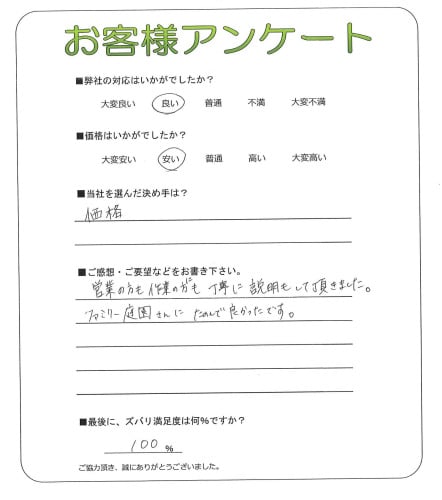 お客様アンケート
■弊社の対応はいかがでしたか？
大変良い 良い 普通 不満 大変不満
■価格はいかがでしたか？
大変安い 安い 普通 高い 大変高い
■当社を選んだ決め手は？
価格
■ご感想・ご要望などをお書き下さい。
営業の方も作業の方も丁寧に説明もして頂きました。
ファミリー庭園さんにたのんで良かったです。
■最後に、ズバリ満足度は何％ですか？
100％
ご協力頂き、誠にありがとうございました。